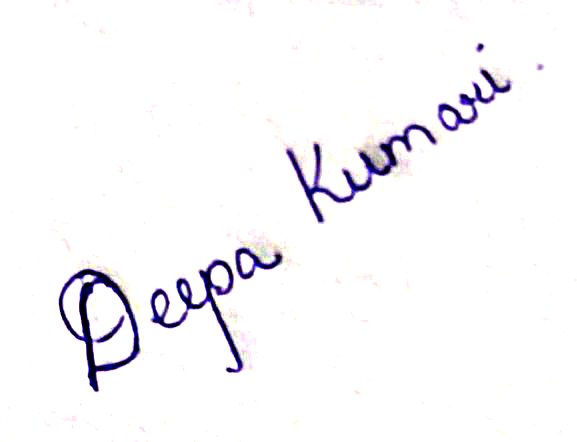 Deepa Kumari.